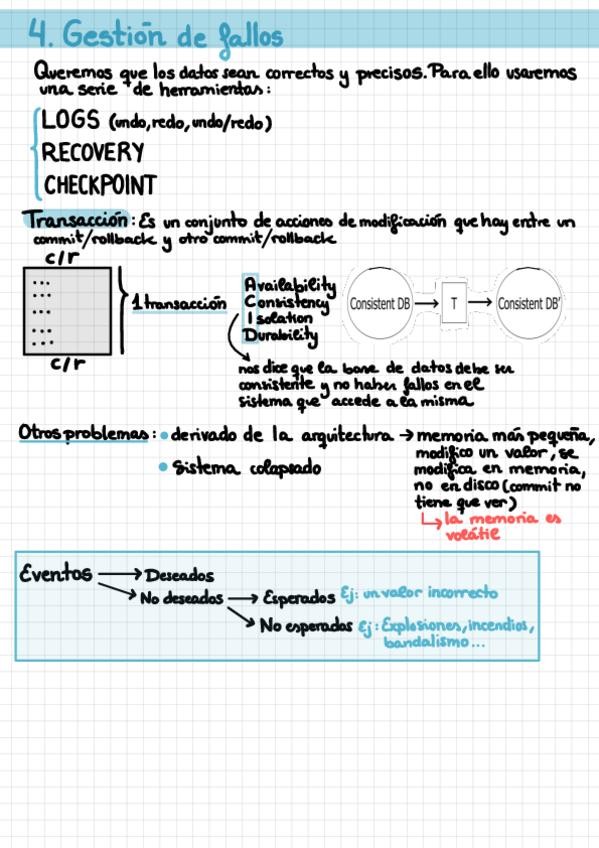 4. Gestión de fallos
Queremos que los datos sean correctos y precisos. Para ello usaremos
una serie de herramientas:
LOGS (undo, redo, undo/redo)
RECOVERY
CHECKPOINT
Transacción: Es un conjunto de acciones de modificación que hay entre un
commit/rollback y otro commit/rollback
c/r
1 transacción
c/r
Availability
Consistency
Isolation
Durability
Consistent DB
T
Consistent DB'
nos dice que la base de datos debe ser
consistente y no haber fallos en el
sistema que accede a la misma
Otros problemas: • derivado de la arquitectura → memoria más pequeña,
modifico un valor, se
modifica en memoria,
no en disco (commit no
tiene que ver)
↳ la memoria es
volátil
• Sistema colapsado
Eventos → Deseados
→ No deseados → Esperados Ej: un valor incorrecto
→ No esperados Ej: Explosiones, incendios,
bandalismo...